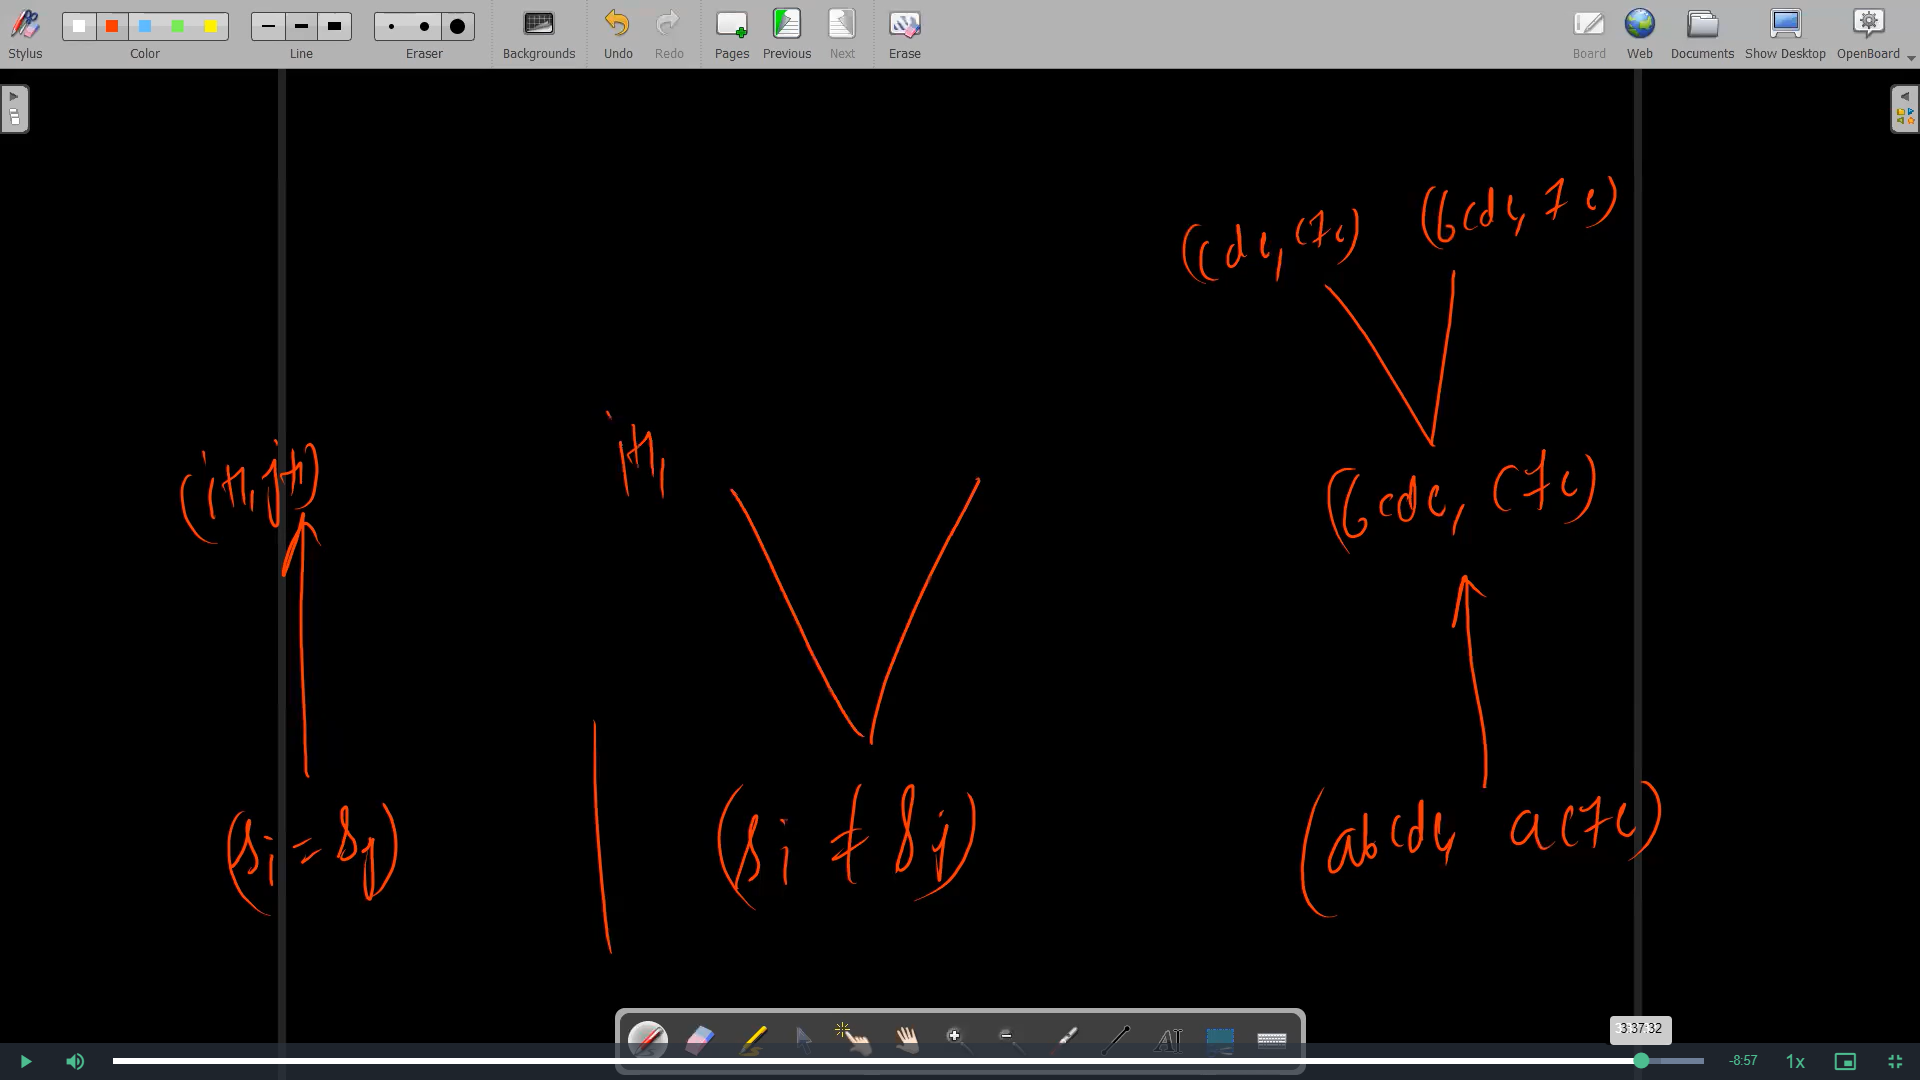 Stylus Color Line Eraser Backgrounds Undo Redo Pages Previous Next Erase Board Web Documents Show Desktop OpenBoard
(cde, cfe) (bcde, fe)
(i+1, j+1) i+1, (bcde, cfe)
(si = sj) (si ≠ sj) (abcde, acfe)
3:37:32
-8:57 1x